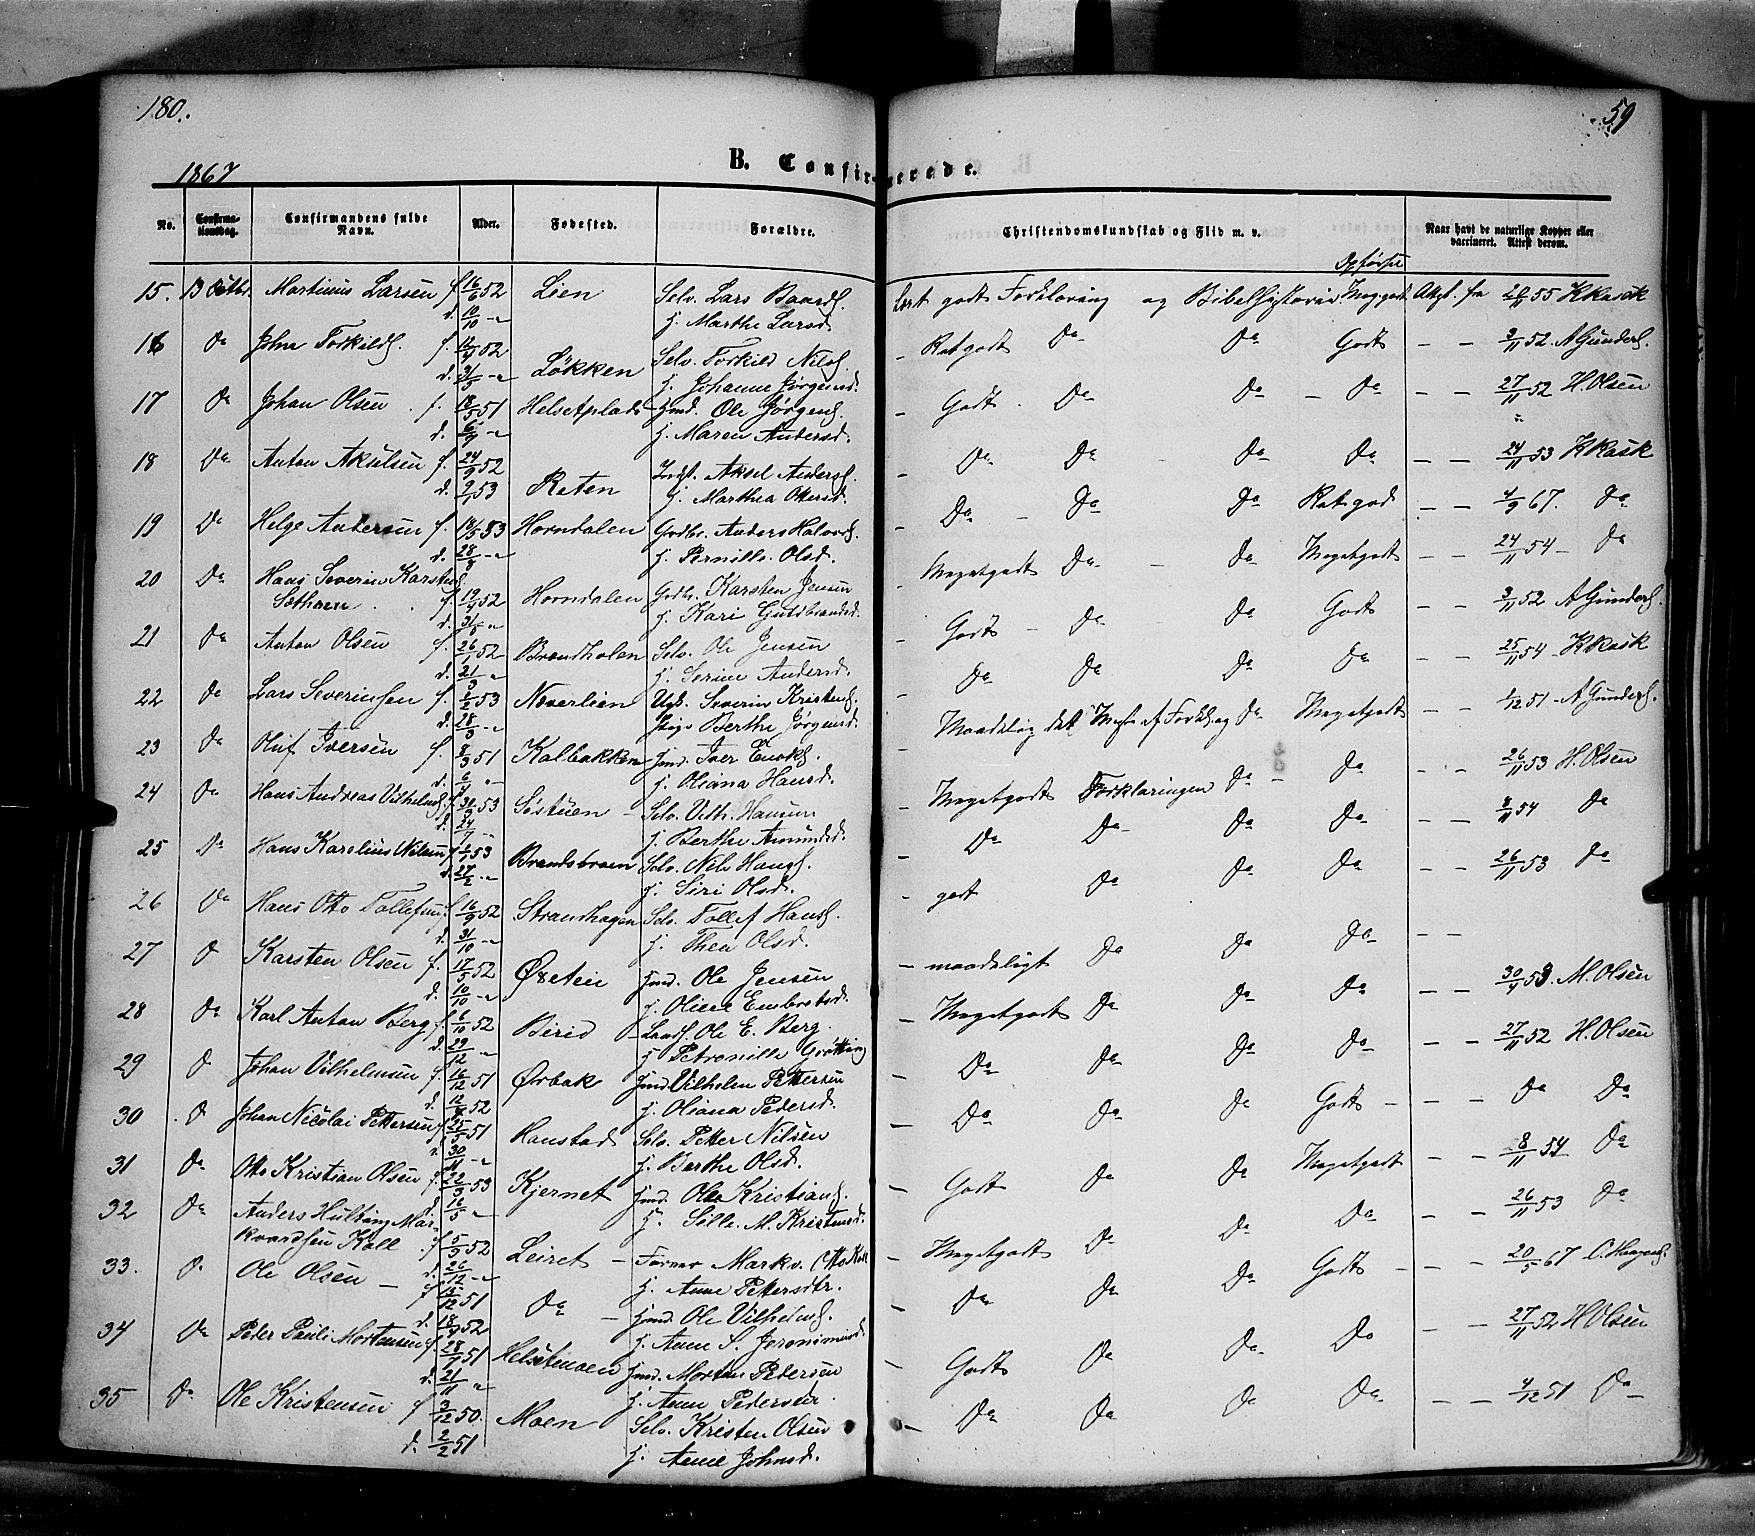 180.
59
1867
B. Confirmerede.
No. Confirmationsdag. Confirmandens fulde Navn. Alder. Fødested. Forældre. Christendomskundskab og Flid m. v. Opførsel Naar havt de naturlige Kopper eller vaccineret. Attest derom.
15. 13 Octbr. Martinus Larsen f. 16/6 52 Lien Selv. Lars Baards. Lært godt Forklaring og Bibelhistorie Meg. godt Attest. fra 55 K Rask
d. 10/10 -"- h. Marthe Larsd.
16 Do Johan Torkilds. f. 52 Løkken Selv. Torkild Nils. - Ret godt Do Do Godt - - 3/11 52 A Gunders.
d. 31/5 -"- h. Johanne Jørgensd.
17 Do Johan Olsen f. 18/5 51 Helsetplads Jmd. Ole Jørgens. - Godt Do Do - Do - - 27/11 52 H. Olsen
d. 6/9 -"- h. Maren Andersd.
18 Do Anton Akselsen f. 24/9 52 Reten Indst. Aksel Anders. - Do Do Do Do - - 24/11 53 K Rask
d. 2/1 53 h. Marthea Olsd.
19 Do Helge Andersen f. 18/5 53 Horndalen Gndbr. Anders Halvors. - Do - Do Do Ret god - - 4/9 67. Do
d. 28/8 -"- h. Pernille Olsd.
20 Do Hans Severin Karstens. Horndalen Gndbr. Karsten Jensen - Megetgodt Do - Do Megetgodt - - 24/11 54 - Do
Sethren f. 19/4 52 h. Kari Guldbrandsd.
d. 31/5 -"-
21 Do Anton Olsen f. 26/1 52 Brendholen Selv. Ole Jensen - Godt - Do Do Godt - - 3/11 52 A Gunders.
d. 21/3 -"- h. Serine Andersd.
22 Do Lars Severinsen f. 2/2 53 Neverlien Ugk. Severin Kristens. - Do Do Do Do - - 25/11 54 K Rask
d. 28/3 -"- Pige Berthe Jørgensd.
23 Do Oluf Iversen f. 8/3 51 Kalbakken Jmd. Iver Enoks. - Maadelig det Meste af Forkl. og Do Megetgodt - - 1/12 51 A Gunders.
d. 6/4 -"- h. Oliana Hansd.
24 Do Hans Andreas Vilhelms. f. 53 Søstuen - Selv. Vilh. Hansen - Megetgodt Forklaringen Do - Do - - 26/11 53 H. Olsen
d. 24/7 -"- h. Berthe Amundsd.
25 Do Hans Karelius Nilsen f. 53 Brandsbraen Selv. Nils Hans. - Do Do Do Do 8/11 54 Do
d. 27/2 -"- h. Siri Olsd.
26 Do Hans Otto Tollefsen f. 16/9 52 Strandhagen Selv. Tollef Hans. - godt Do Do Do - - 26/11 53 Do
d. 31/10 -"- h. Thea Olsd.
27 D Karsten Olsen f. 17/5 52 Øxeteie Jmd. Ole Jensen - maadeligt Do Do Do - -
d. 10/10 -"- h. Oline Embretsd.
28 Do Karl Anton Berg f. 6/10 52 Birid Lands. Ole E. Berg. - Megetgodt Do Do Do - - 30/9 53. M. Olsen
d. 29/12 -"- h. Petronille Grøtting
29 D Johan Vilhelmsen f. 16/12 51 Ørbak Jmd. Vilhelm Pettersen - Do Do Do Do - - 27/11 52 H. Olsen
d. 12/4 52 h. Oliana Pedersd.
30 D Johan Nicolai Pettersen f. 25/5 51 Hanstad Selv. Petter Nilsen - Do Do Do Godt - - - Do Do
d. 30/11 -"- h. Berthe Olsd.
31 Do Otto Kristian Olsen f. 22/3 53 Kjernet Jmd. Ole Kristians. - Godt Do Do Megetgodt - - 8/11 54 Do
d. 16/5 -"- h. Sille. M. Kristensd.
32 Do Anders Hulting Mar- - Megetgodt Do Do Do - - 26/11 53 Do
kvardsen Koll f. 5/9 52 Leiret - Former Markv. Otto Koll
d. 26/12 -"- h. Anne Pettersdtr.
33. D. Ole Olsen - f. 15/12 51 Do - Jmd. Ole Vilhelms. - Do Do Do Godt - - 20/5 67 C. Haagens.
d. 18/9 52 h. Anne S. Jeronimusd.
34 Do Peder Pauli Mortensen f. 28/7 51 Helsetmoen Jmd. Morten Pedersen - Godt Do Do Do - - 27/11 52 H Olsen
d. 21/11 -"- h. Anne Pedersen.
35 Do Ole Kristensen f. 3/12 50. Moen Selv. Kristen Olsen - Do Do Do Do - - 4/12 51 Do
d. 2/2 51 h. Anne Johnsd.